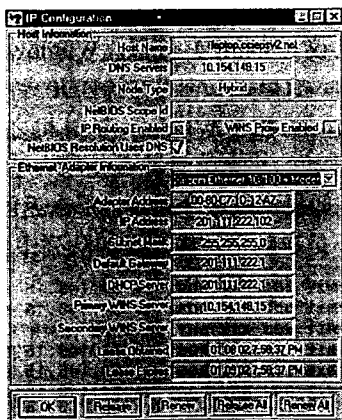 IP Configuration
Host Information
Host Name laptop.ccieprv2.net
DNS Servers 10.154.148.15
Node Type Hybrid
NetBIOS Scope Id
IP Routing Enabled WINS Proxy Enabled
NetBIOS Resolution Uses DNS
Ethernet Adapter Information
Ethernet 10/100
Adapter Address 00-80-C7
IP Address 201.111.222.102
Subnet Mask 255.255.255.0
Default Gateway 201.111.222.1
DHCP Server 201.111.222.1
Primary WINS Server 10.154.148.15
Secondary WINS Server
Lease Obtained 01 08 02 7:56:37 PM
Lease Expires 01 09 02 7:56:37 PM
OK Release Renew Release All Renew All